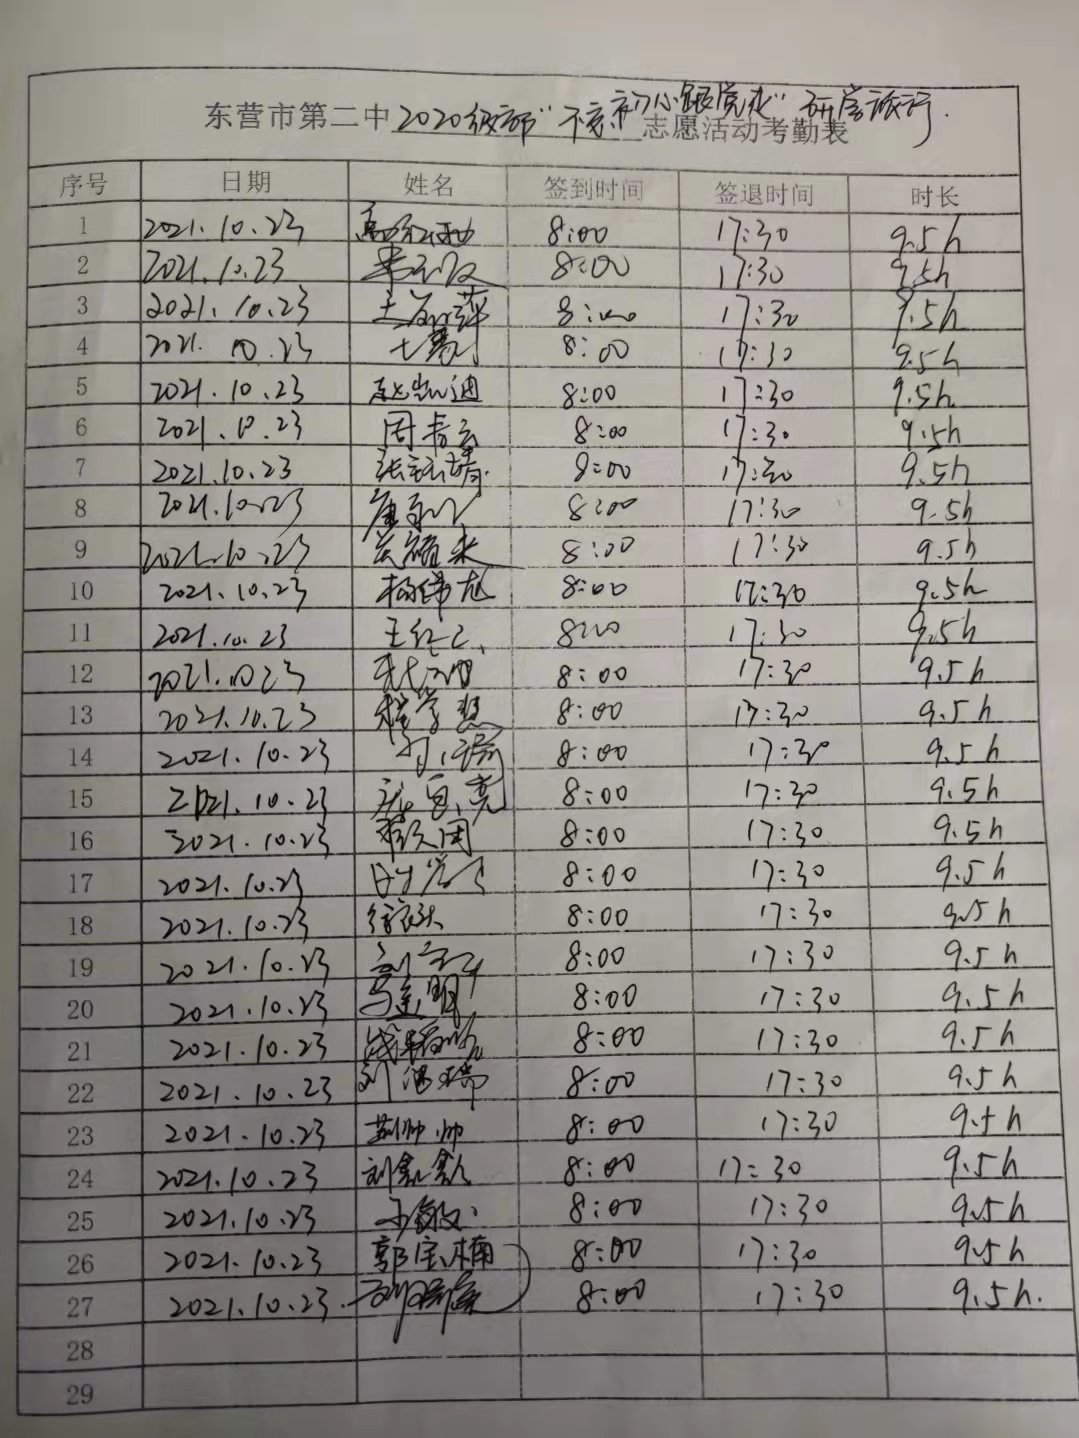 东营市第二中 2020级部"不忘初心跟党走"研学旅行.
志愿活动考勤表
序号 日期 姓名 签到时间 签退时间 时长
1 2021.10.23 8:00 17:30 9.5h
2 2021.10.23 8:00 17:30 9.5h
3 2021.10.23 8:00 17:30 9.5h
4 2021.10.23 8:00 17:30 9.5h
5 2021.10.23 赵凯迪 8:00 17:30 9.5h
6 2021.10.23 8:00 17:30 9.5h
7 2021.10.23 8:00 17:30 9.5h
8 2021.10.23 8:00 17:30 9.5h
9 2021.10.23 8:00 17:30 9.5h
10 2021.10.23 杨伟龙 8:00 17:30 9.5h
11 2021.10.23 8:00 17:30 9.5h
12 2021.10.23 8:00 17:30 9.5h
13 2021.10.23 程学慧 8:00 17:30 9.5h
14 2021.10.23 8:00 17:30 9.5h
15 2021.10.23 8:00 17:30 9.5h
16 2021.10.23 8:00 17:30 9.5h
17 2021.10.23 8:00 17:30 9.5h
18 2021.10.23 8:00 17:30 9.5h
19 2021.10.23 8:00 17:30 9.5h
20 2021.10.23 8:00 17:30 9.5h
21 2021.10.23 8:00 17:30 9.5h
22 2021.10.23 8:00 17:30 9.5h
23 2021.10.23 荆帅帅 8:00 17:30 9.5h
24 2021.10.23 刘鑫鑫 8:00 17:30 9.5h
25 2021.10.23 8:00 17:30 9.5h
26 2021.10.23 郭宝楠 8:00 17:30 9.5h
27 2021.10.23. 8:00 17:30 9.5h.
28
29